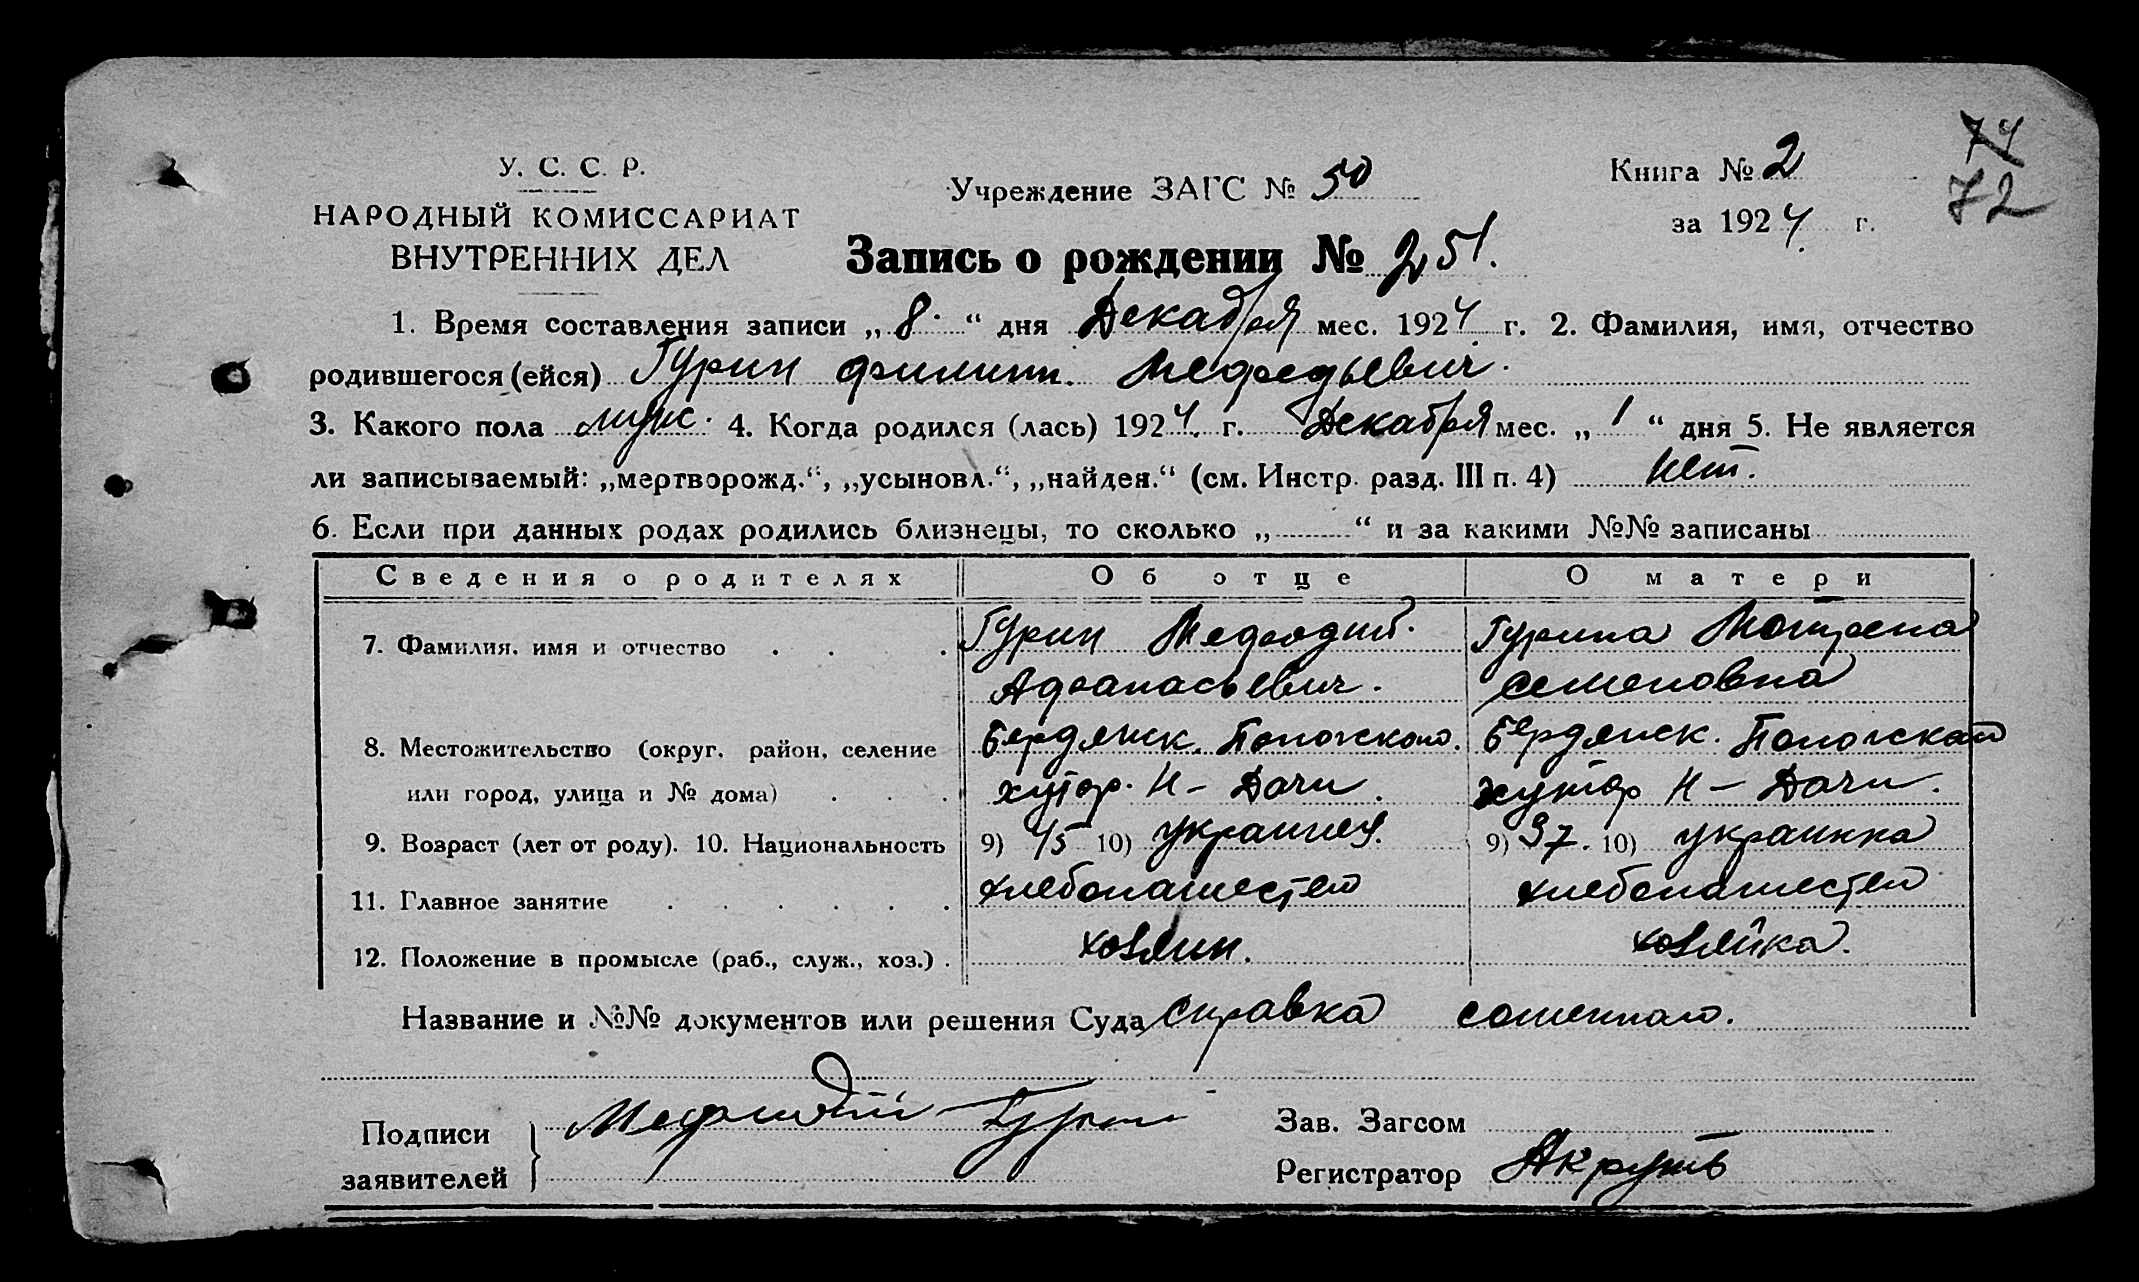 74
72
У. С. С. Р.
НАРОДНЫЙ КОМИССАРИАТ
ВНУТРЕННИХ ДЕЛ
Учреждение ЗАГС № 50
Книга № 2
за 1924 г.
Запись о рождении № 251.
1. Время составления записи „8.“ дня Декабря мес. 1924 г. 2. Фамилия, имя, отчество
родившегося (ейся) Гурин Филипп. Мефодьевич.
3. Какого пола муж. 4. Когда родился (лась) 1924 г. Декабря мес. „1“ дня 5. Не является
ли записываемый: „мертворожд.“, „усыновл.“, „найден.“ (см. Инстр. разд. III п. 4) Нет.
6. Если при данных родах родились близнецы, то сколько „ “ и за какими №№ записаны
Сведения о родителях Об отце О матери
7. Фамилия, имя и отчество Гурин Мефодий. Гурина Мотрена
Афанасьевич. Семеновна
8. Местожительство (округ, район, селение Бердянск. Пологского. Бердянск. Пологского
или город, улица и № дома) хутор. Н-Дачи. хутор Н-Дачи.
9. Возраст (лет от роду). 10. Национальность 9) 45 10) украинец. 9) 37. 10) украинка
11. Главное занятие хлебопашеством хлебопашеством
12. Положение в промысле (раб., служ., хоз.) хозяин. хозяйка.
Название и №№ документов или решения Суда Справка
Подписи заявителей Мефодий Гурин
Зав. Загсом
Регистратор